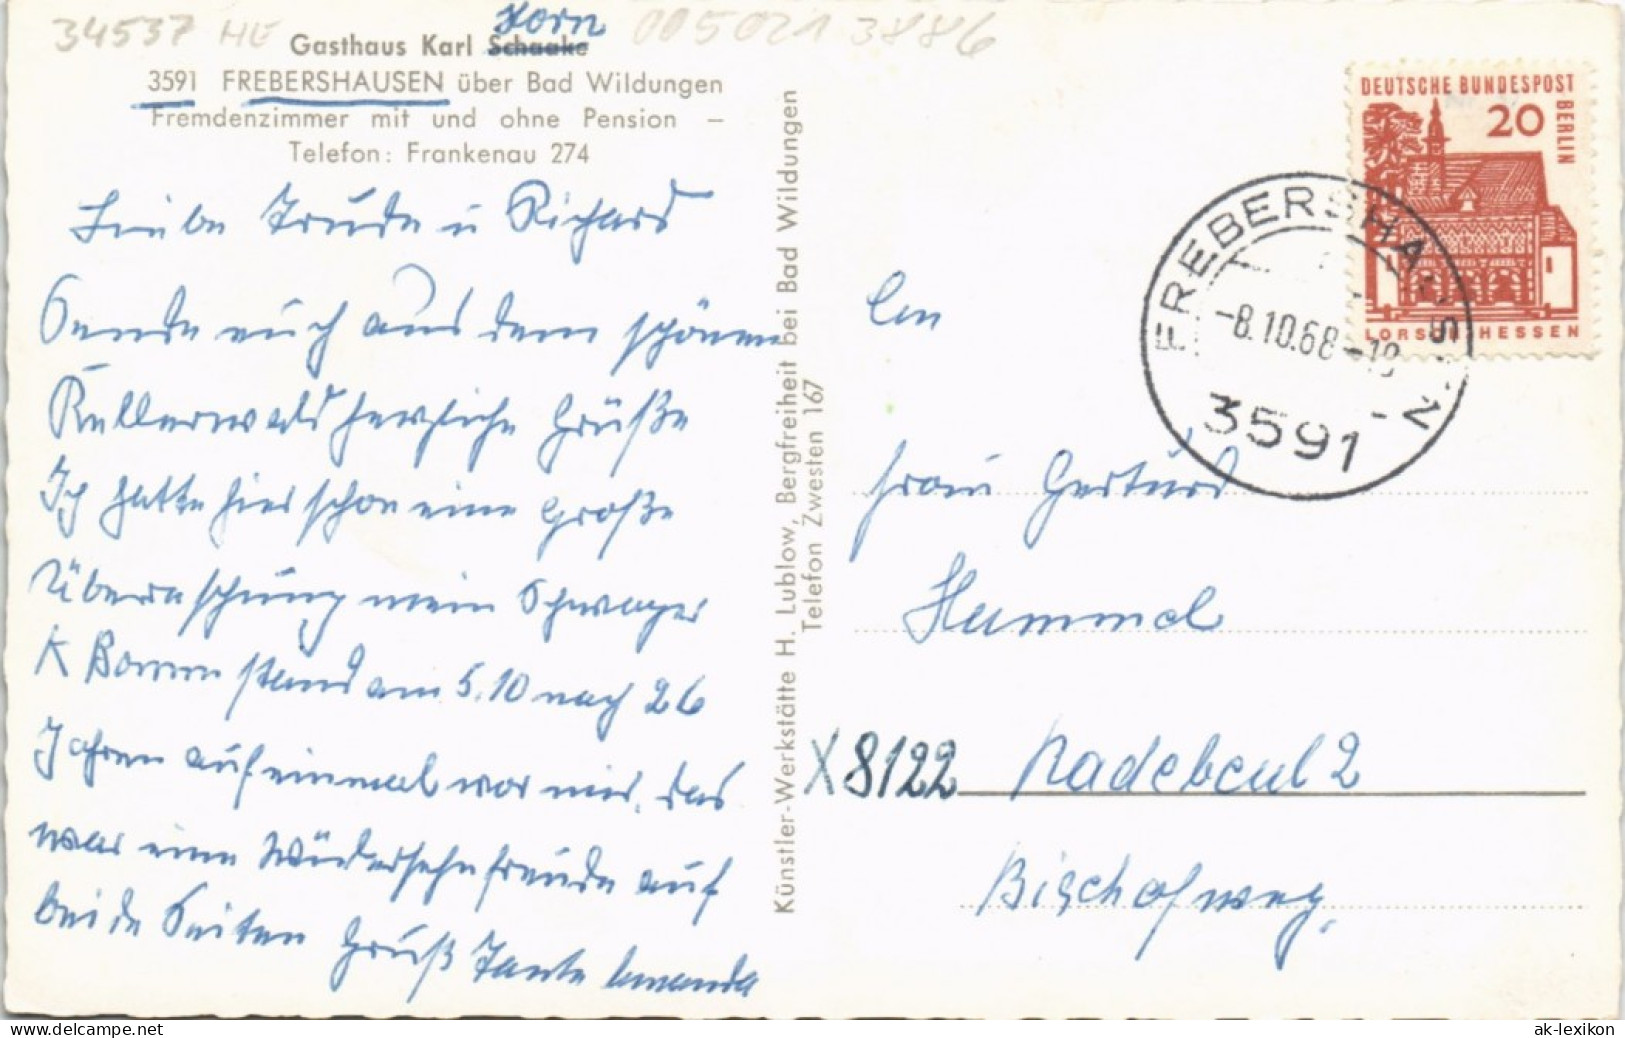 34537 HE
005021 3886
Horn
Gasthaus Karl Schaake
3591 FREBERSHAUSEN über Bad Wildungen
Fremdenzimmer mit und ohne Pension –
Telefon: Frankenau 274
Liebe Trude u Richard
Sende euch aus dem schönen
Kellerwald herzliche Grüße
Ich hatte hier schon eine große
Überraschung mein Schwager
K Bomm stand am 5.10 nach 26
Jahren auf einmal vor mir, das
war eine Wiedersehnfreude auf
beide Seiten Gruß Tante Amanda
Künstler-Werkstätte H. Lublow, Bergfreiheit bei Bad Wildungen
Telefon Zwesten 167
DEUTSCHE BUNDESPOST
BERLIN
20
LORSCH HESSEN
FREBERSHAUSEN
-8.10.68-18
3591
An
Frau Gertrud
Hummel
X8122 Radebeul 2
Bischofweg,
ak-lexikon
the-collection.delcampe.net